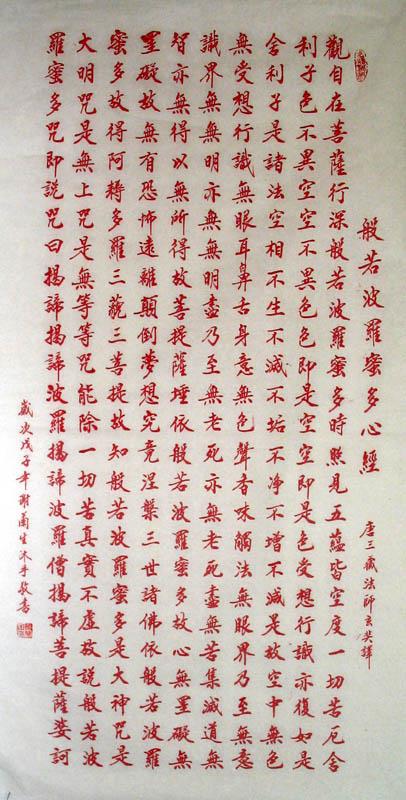 般若波羅蜜多心經
唐三藏法師玄奘譯
觀自在菩薩行深般若波羅蜜多時照見五蘊皆空度一切苦厄舍
利子色不異空空不異色色即是空空即是色受想行識亦復如是
舍利子是諸法空相不生不滅不垢不净不增不減是故空中無色
無受想行識無眼耳鼻舌身意無色聲香味觸法無眼界乃至無意
識界無無明亦無無明盡乃至無老死亦無老死盡無苦集滅道無
智亦無得以無所得故菩提薩埵依般若波羅蜜多故心無罣礙無
罣礙故無有恐怖遠離顛倒夢想究竟涅槃三世諸佛依般若波羅
蜜多故得阿耨多羅三藐三菩提故知般若波羅蜜多是大神咒是
大明咒是無上咒是無等等咒能除一切苦真實不虛故說般若波
羅蜜多咒即說咒曰揭諦揭諦波羅揭諦波羅僧揭諦菩提薩婆訶
歲次戊子年謝國生沐手敬書